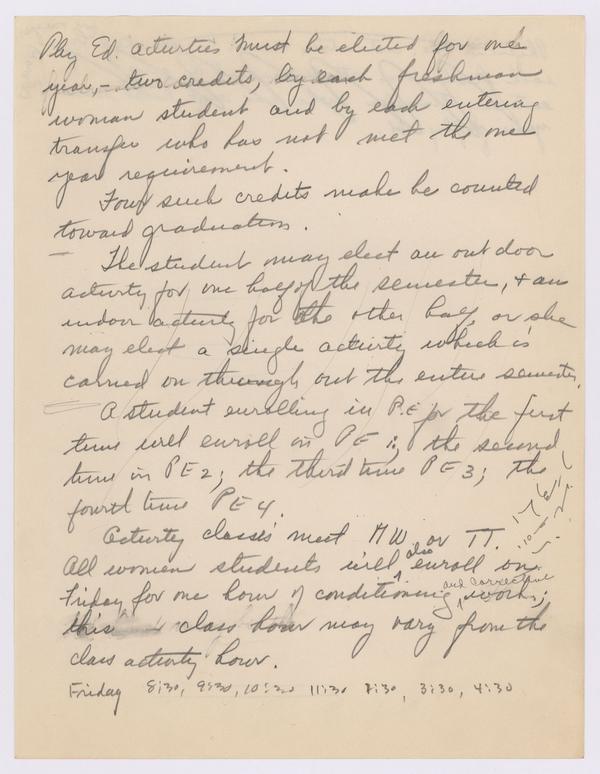 Phy Ed. activities must be elected for one
year, – two credits, by each freshman
woman student and by each entering
transfer who has not met the one
year requirement.
Four such credits make be counted
toward graduation.
The student may elect an outdoor
activity for one half of the semester, + an
indoor activity for the other half, or she
may elect a single activity which is
carried on through out the entire semester.
A student enrolling in P.E for the first
time will enroll in PE 1; the second
time in PE 2; the third time PE 3; the
fourth time PE 4.
Activity classes meet MW or TT.
All women students will also enroll on
Friday for one hour of conditioning and corrective work;
this class hour may vary from the
class activity hour.
Friday 8:30, 9:30, 10:30 11:30 2:30, 3:30, 4:30